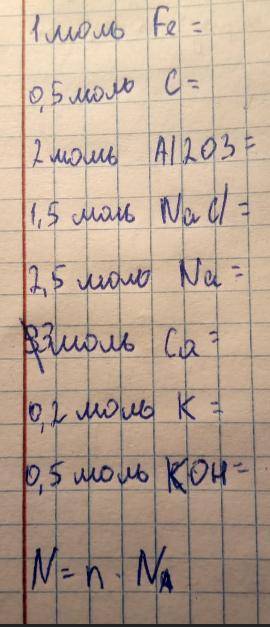 1 моль Fe =
0,5 моль C =
2 моль Al2O3 =
1,5 моль NaCl =
2,5 моль Na =
3 моль Ca =
0,2 моль K =
0,5 моль KOH =
N = n · NA